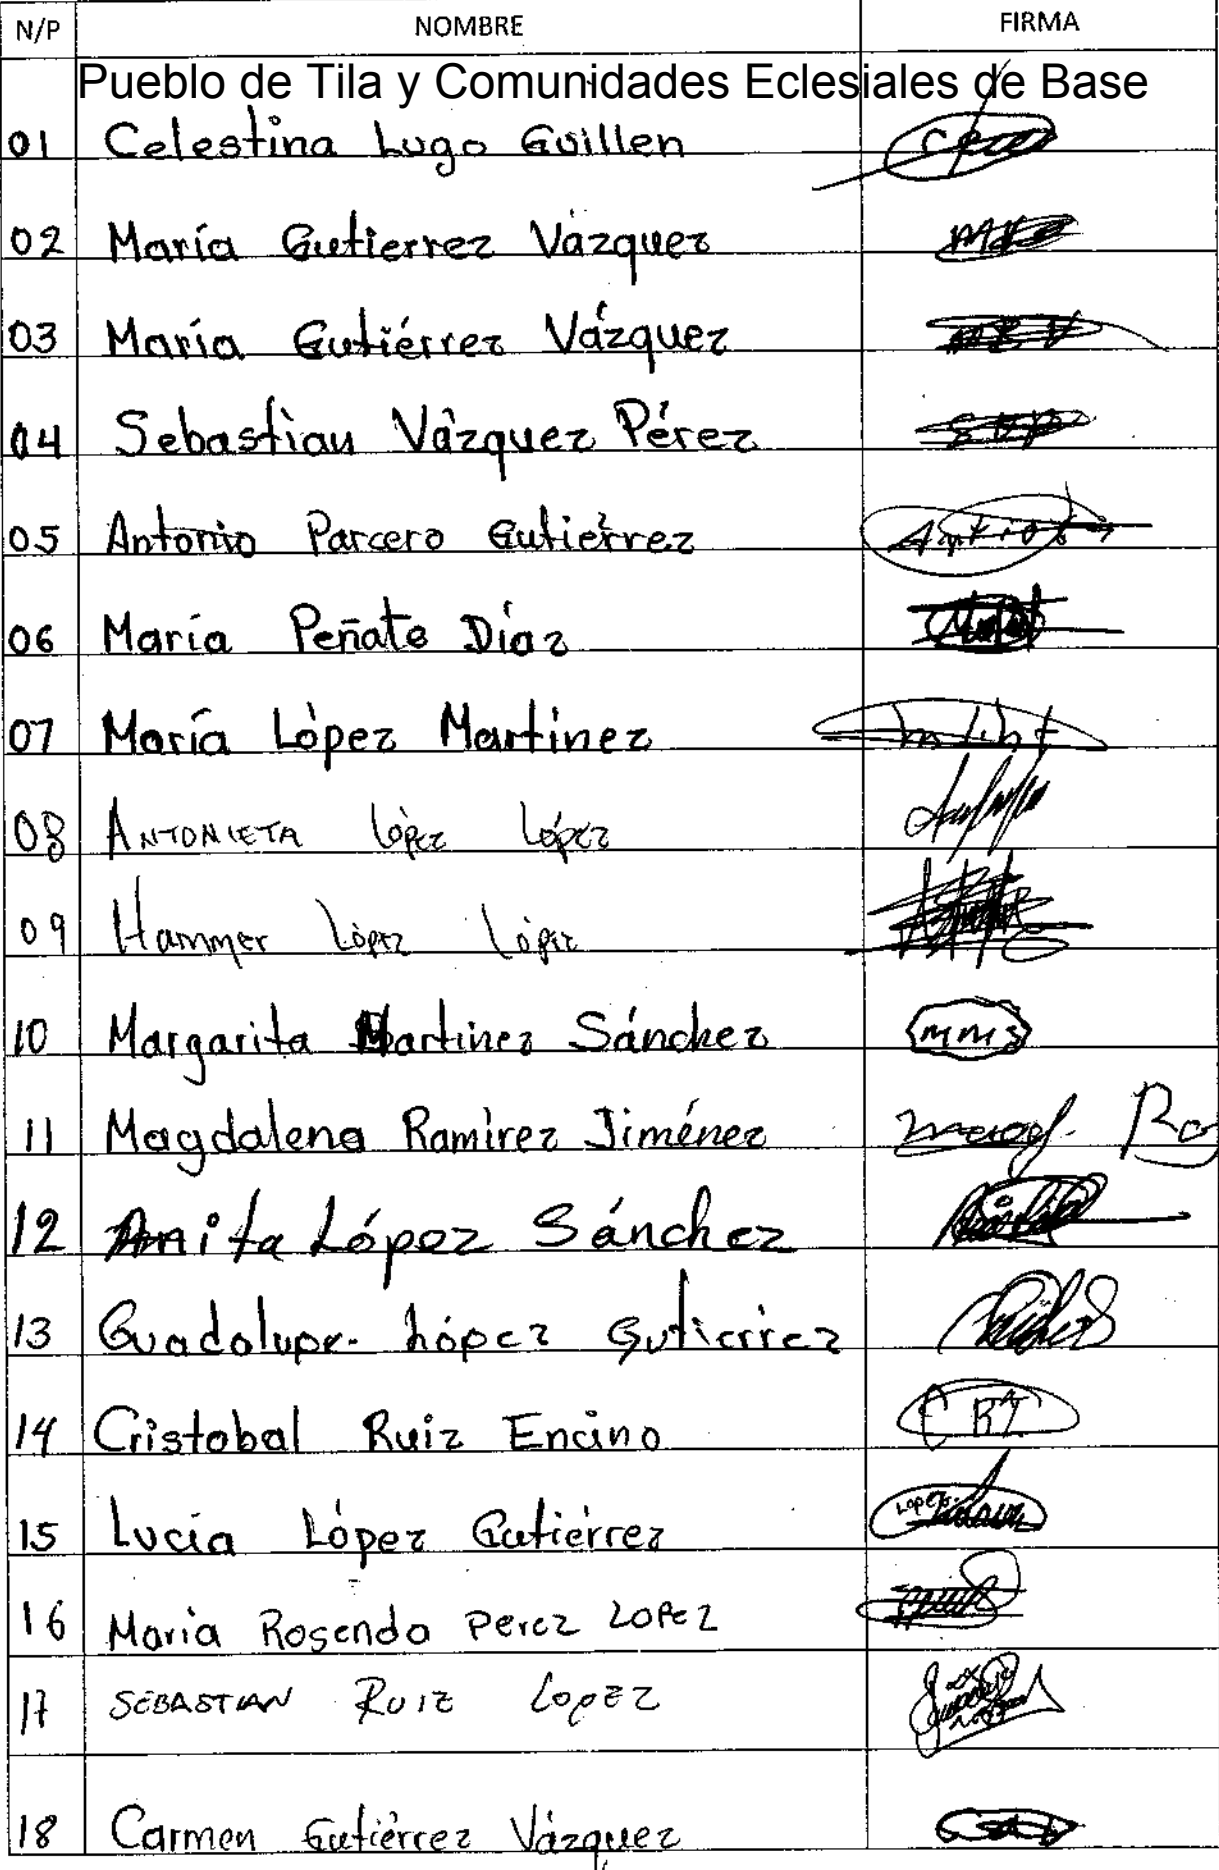 N/P NOMBRE FIRMA
Pueblo de Tila y Comunidades Eclesiales de Base
01 Celestina Lugo Guillen
02 María Gutierrez Vázquez
03 María Gutiérrez Vázquez
04 Sebastian Vázquez Pérez SVP
05 Antonio Parcero Gutiérrez
06 María Peñate Díaz
07 María López Martinez
08 ANTONIETA López López
09 Hammer López López
10 Margarita Martinez Sánchez MMS
11 Magdalena Ramirez Jiménez
12 Anita López Sánchez
13 Guadalupe. López Gutierrez
14 Cristobal Ruiz Encino
15 Lucía López Gutiérrez
16 Maria Rosenda Perez LOPEZ
17 SEBASTIAN RUIZ LOPEZ
18 Carmen Gutiérrez Vázquez